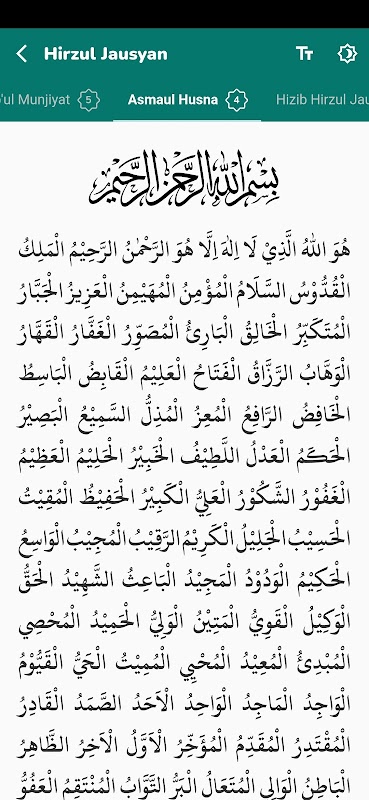 Hirzul Jausyan
'ul Munjiyat 5 Asmaul Husna 4 Hizib Hirzul Jau
بِسْمِ اللهِ الرَّحْمٰنِ الرَّحِيْمِ
هُوَ اللهُ الَّذِيْ لَا اِلٰهَ اِلَّا هُوَ الرَّحْمٰنُ الرَّحِيْمُ الْمَلِكُ
الْقُدُّوْسُ السَّلَامُ الْمُؤْمِنُ الْمُهَيْمِنُ الْعَزِيْزُ الْجَبَّارُ
الْمُتَكَبِّرُ الْخَالِقُ الْبَارِئُ الْمُصَوِّرُ الْغَفَّارُ الْقَهَّارُ
الْوَهَّابُ الرَّزَّاقُ الْفَتَّاحُ الْعَلِيْمُ الْقَابِضُ الْبَاسِطُ
الْخَافِضُ الرَّافِعُ الْمُعِزُ الْمُذِلُّ السَّمِيْعُ الْبَصِيْرُ
الْحَكَمُ الْعَدْلُ اللَّطِيْفُ الْخَبِيْرُ الْحَلِيْمُ الْعَظِيْمُ
الْغَفُوْرُ الشَّكُوْرُ الْعَلِيُّ الْكَبِيْرُ الْحَفِيْظُ الْمُقِيْتُ
الْحَسِيْبُ الْجَلِيْلُ الْكَرِيْمُ الرَّقِيْبُ الْمُجِيْبُ الْوَاسِعُ
الْحَكِيْمُ الْوَدُوْدُ الْمَجِيْدُ الْبَاعِثُ الشَّهِيْدُ الْحَقُّ
الْوَكِيْلُ الْقَوِيُّ الْمَتِيْنُ الْوَلِيُّ الْحَمِيْدُ الْمُحْصِي
الْمُبْدِئُ الْمُعِيْدُ الْمُحْيِي الْمُمِيْتُ الْحَيُّ الْقَيُّوْمُ
الْوَاجِدُ الْمَاجِدُ الْوَاحِدُ الْاَحَدُ الصَّمَدُ الْقَادِرُ
الْمُقْتَدِرُ الْمُقَدِّمُ الْمُؤَخِّرُ الْاَوَّلُ الْاٰخِرُ الظَّاهِرُ
الْبَاطِنُ الْوَالِي الْمُتَعَالُ الْبَرُّ التَّوَّابُ الْمُنْتَقِمُ الْعَفُوُّ